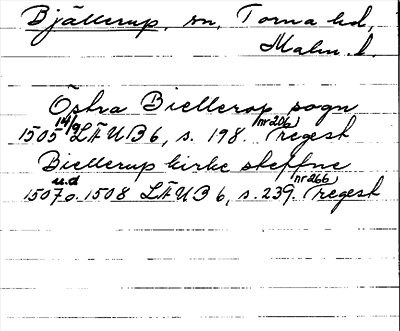 Bjällerup, sn, Torna hd,
Malm. l.
Östra Biellerop sogn
1505 14/9 LÄUB 6, s. 198. (nr 206) regest
Biellerup kirke steffne
1507 u.d o. 1508 LÄUB 6, s. 239. (nr 266) regest